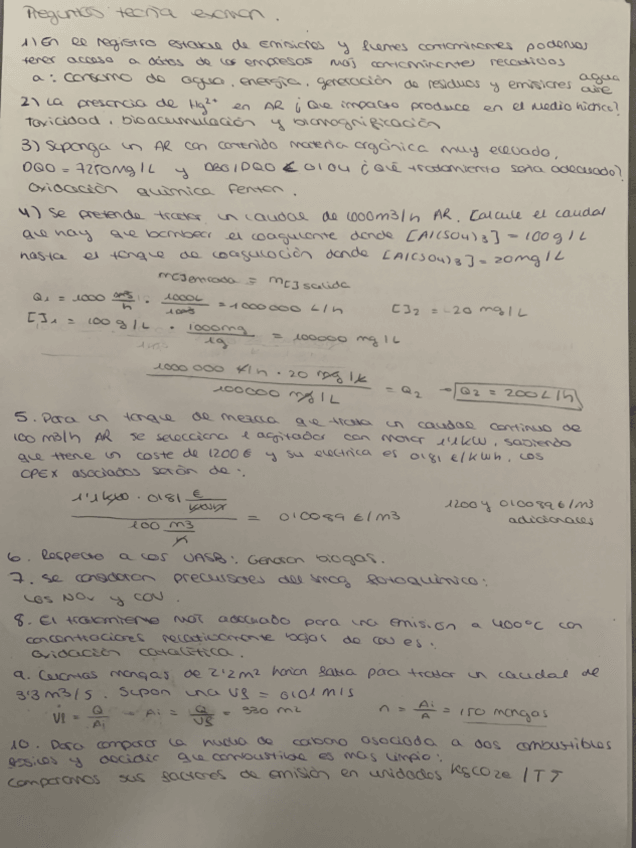 Preguntas teoría examen.
1) En el registro estatal de emisiones y fuentes contaminantes podemos
tener acceso a datos de las empresas más contaminantes relativos
a: consumo de agua, energía, generación de residuos y emisiones agua
aire
2) La presencia de Hg2+ en AR ¿Qué impacto produce en el medio hídrico?
Toxicidad, bioacumulación y biomagnificación
3) Suponga un AR con contenido materia orgánica muy elevado,
DQO = 7250mg/L y DBO/DQO < 0'04 ¿Qué tratamiento sería adecuado?
Oxidación química Fenton.
4) Se pretende tratar un caudal de 1000m3/h AR. Calcule el caudal
que hay que bombear el coagulante donde [Al(SO4)3] = 100g/L
hasta el tanque de coagulación donde [Al(SO4)3] = 20mg/L
m[]entrada = m[]salida
Q1 = 1000 m3/h · 1000L/1m3 = 1000000 L/h [ ]2 = 20 mg/L
[ ]1 = 100 g/L · 1000mg/1g = 100000 mg/L
1000000 L/h · 20 mg/L / 100000 mg/L = Q2 → Q2 = 200L/h
5. Para un tanque de mezcla que trata un caudal continuo de
100 m3/h AR se selecciona 1 agitador con motor 1'1kW, sabiendo
que tiene un coste de 1200€ y su electrica es 0'81 €/kWh, los
CPEX asociados serán de:
1'1kW · 0'81 €/kWh / 100 m3/h = 0'0089 €/m3 1200 y 0'0089 €/m3
adicionales
6. Respecto a los UASB: Generan biogas.
7. Se consideran precursores del smog fotoquímico:
Los NOx y COV.
8. El tratamiento más adecuado para una emisión a 400ºC con
concentraciones relativamente bajas de COV es:
oxidación catalítica.
9. Cuantas mangas de 2'2m2 harían falta para tratar un caudal de
3'3 m3/s. Supon una Vf = 0'01 m/s
Vf = Q/Ai → Ai = Q/Vf = 330 m2 n = Ai/A = 150 mangas
10. Para comparar la huella de carbono asociada a dos combustibles
fósiles y decidir que combustible es más limpio:
comparamos sus factores de emisión en unidades kgCO2e/TJ